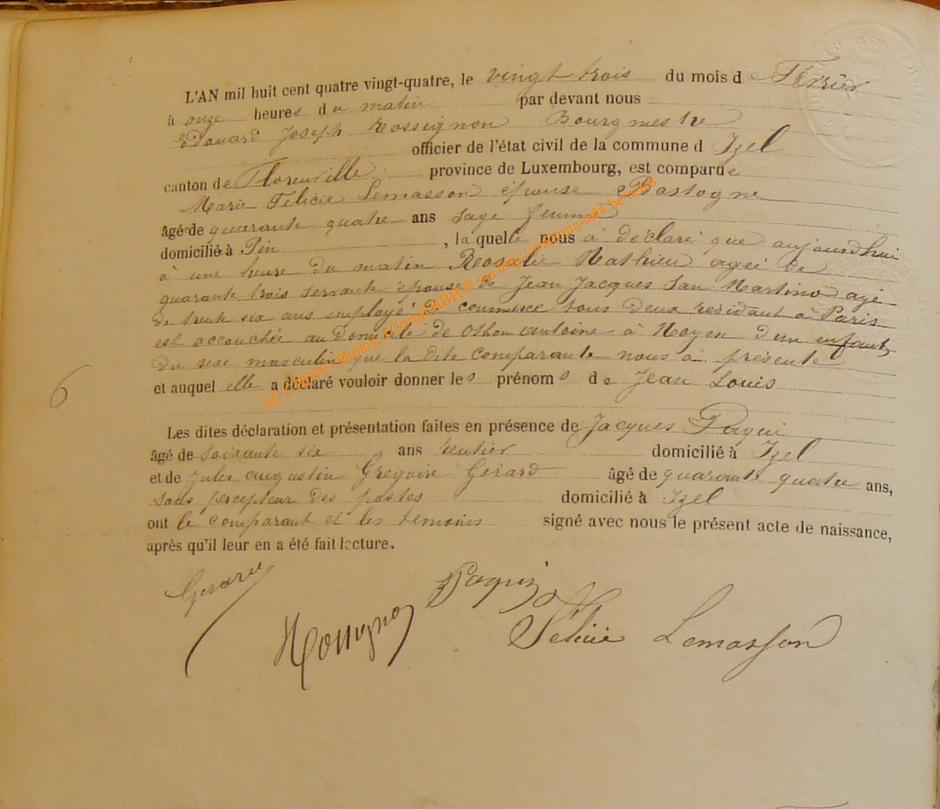 L'AN mil huit cent quatre vingt-quatre, le vingt trois du mois d e Février
à onze heures d u matin par devant nous
Edouard Joseph Rossignon Bourgmestre
officier de l'état civil de la commune d Izel
canton de Florenville province de Luxembourg, est comparue
Marie Félicie Lemasson épouse Bastogne
âgé e de quarante quatre ans sage femme
domicilié à Pin , laquelle nous à déclaré que aujourdhui
à une heure du matin Rosalie Mathieu agée de
quarante trois servante épouse de Jean Jacques San Martino agé
de trente six ans employé de commerce tous deux residant à Paris
est accouchée au domicile de Othon Antoine à Moyen d'un enfant
du sexe masculin que la dite comparante nous à présenté
et auquel elle a déclaré vouloir donner le s prénom s d e Jean Louis
6
Les dites déclaration et présentation faites en présence de Jacques Paquin
âgé de soixante six ans rentier domicilié à Izel
et de Jules Augustin Grégoire Gérard âgé de quarante quatre ans,
sous percepteur des postes domicilié à Izel
ont le comparant et les témoins signé avec nous le présent acte de naissance,
après qu'il leur en a été fait lecture.
Gerard
Paquin
Rossignon
Félicie Lemasson